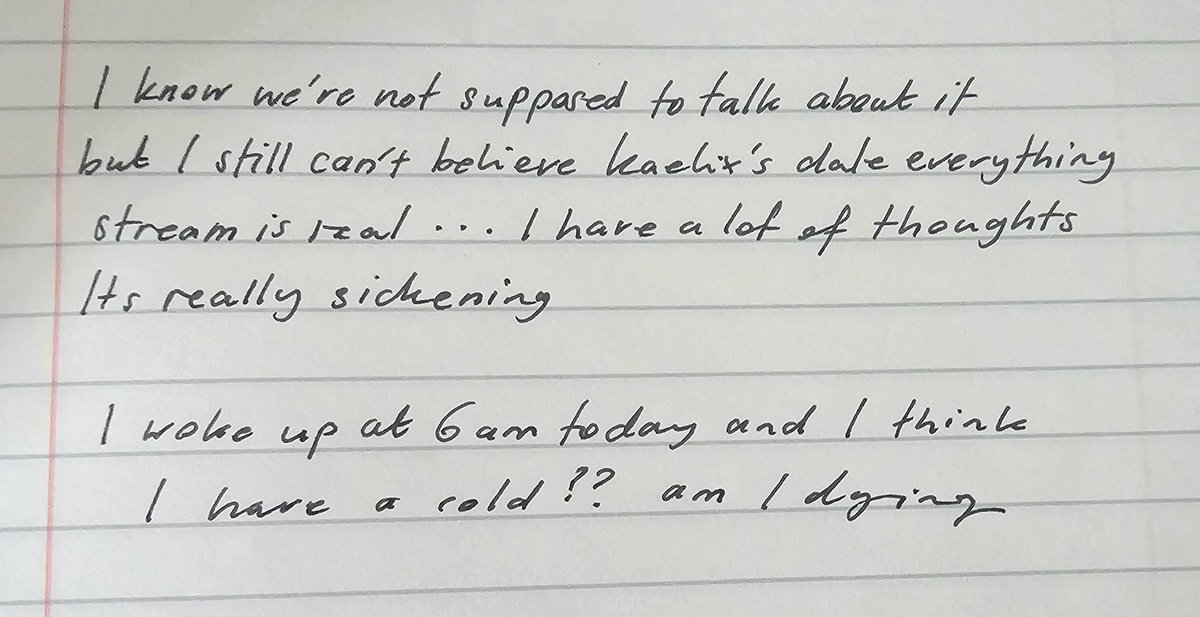 I know we're not supposed to talk about it
but I still can't believe kaelix's date everything
stream is real ... I have a lot of thoughts
Its really sickening
I woke up at 6am today and I think
I have a cold?? am I dying